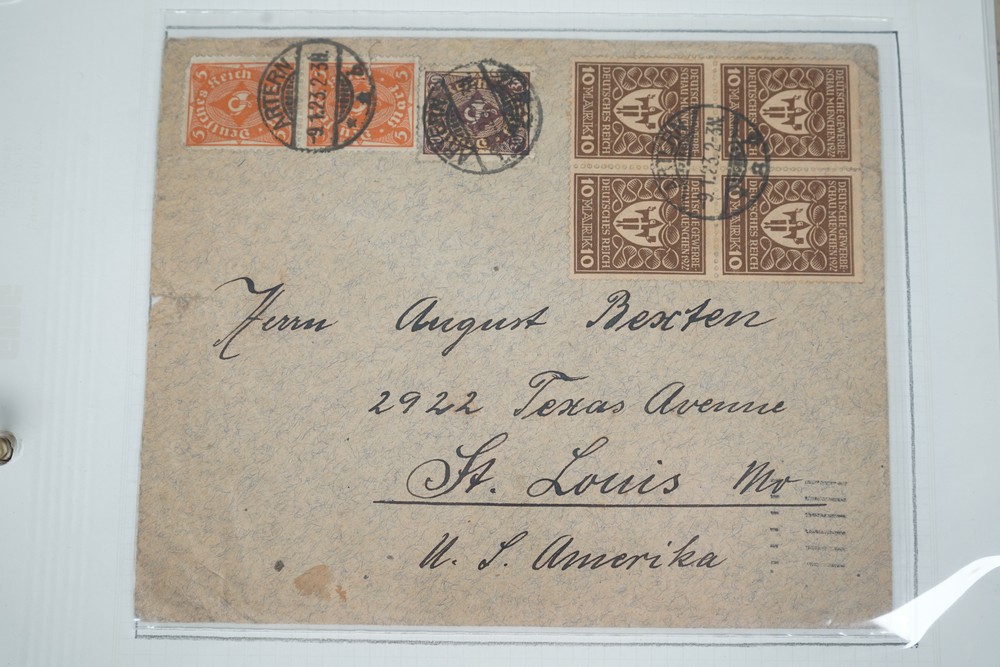 5 Deutsches Reich
5
ARTERN
-9.1.23.2-3N.
10 MARK 10
DEUTSCHES REICH
DEUTSCHE GEWERBE
SCHAU MUENCHEN 1922
10 MARK 10
DEUTSCHES REICH
DEUTSCHE GEWERBE
SCHAU MUENCHEN 1922
10 MARK 10
DEUTSCHES REICH
DEUTSCHE GEWERBE
SCHAU MUENCHEN 1922
10 MARK 10
DEUTSCHES REICH
DEUTSCHE GEWERBE
SCHAU MUENCHEN 1922
ARTERN
9.1.23.2-3N.
Herrn August Bexten
2922 Texas Avenue
St. Louis Mo
U. S. Amerika